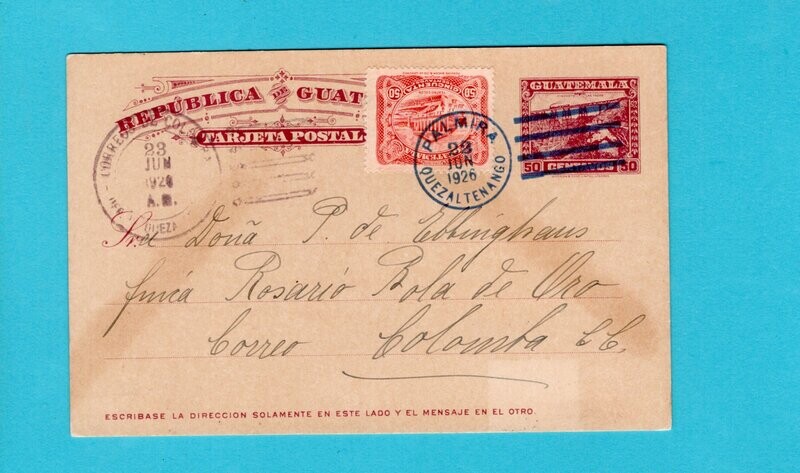 REPÚBLICA DE GUAT
TARJETA POSTAL
50 50
GUATEMALA
50 CENTAVOS 50
CORREOS DE COLOMBA
23
JUN
1926
A.M.
QUEZA
PALMIRA
23
JUN
1926
QUEZALTENANGO
Sra Doña P. de Ebbinghaus
finca Rosario Bola de Oro
Correo Colomba C.C.
ESCRIBASE LA DIRECCION SOLAMENTE EN ESTE LADO Y EL MENSAJE EN EL OTRO.